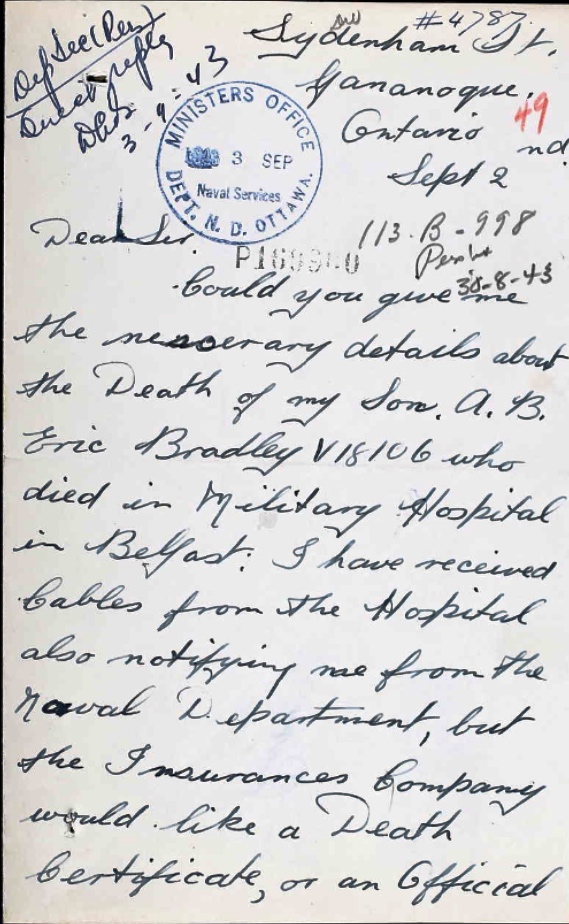 #4787
Sydenham St,
Gananoque,
49
Ontario
nd
Sept 2
Dep Sec (Pers)
Direct reply
3-9-43
MINISTERS OFFICE
1943 3 SEP
Naval Services
DEPT. N. D. OTTAWA.
113-B-998
30-8-43
Dear Sir,
Could you give me
the nesserary details about
the Death of my Son. A. B.
Eric Bradley V18106 who
died in Military Hospital
in Belfast. I have received
Cables from the Hospital
also notifying me from the
Naval Department, but
the Insurances Company
would like a Death
Certificate, or an Official